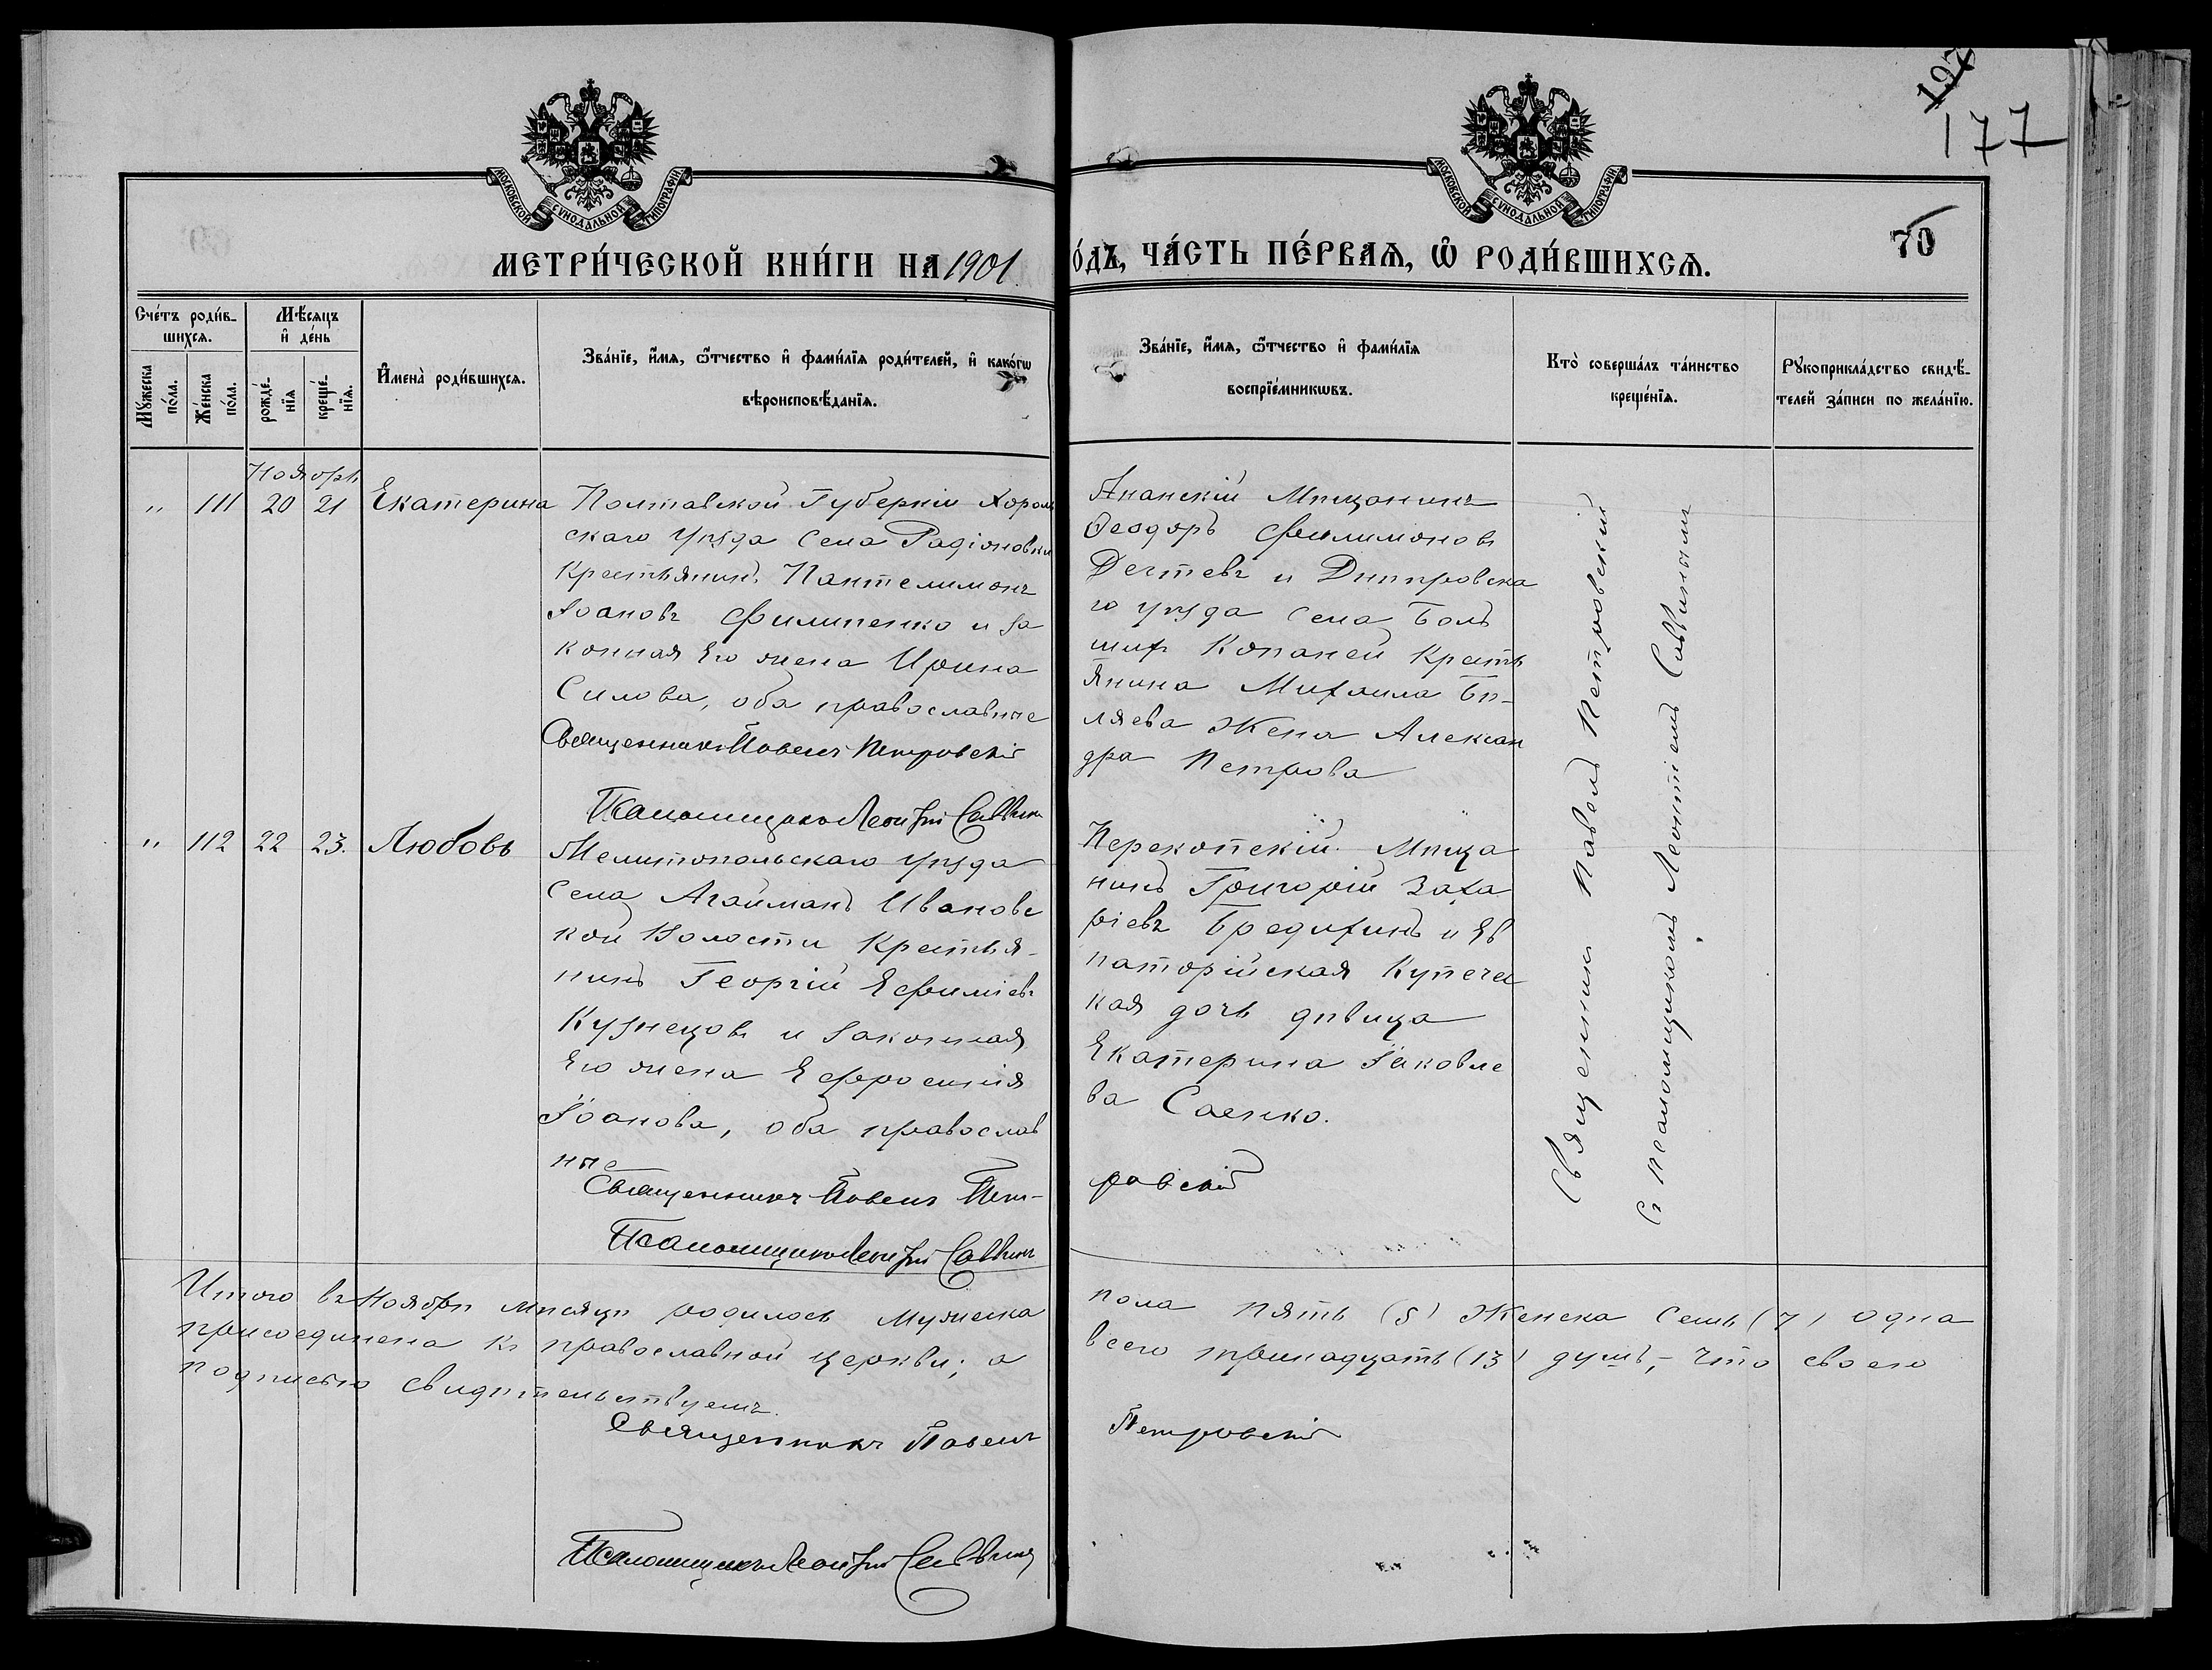 197
177
МОСКОВСКОЙ СѴНОДАЛЬНОЙ ТИПОГРАФІИ
МОСКОВСКОЙ СѴНОДАЛЬНОЙ ТИПОГРАФІИ
70
МЕТРИ́ЧЕСКОЙ КНИ́ГИ НА 1901
О́ДЪ, ЧА́СТЬ ПЕ́РВАѦ, Ѡ҆ РОДИ́ВШИХСѦ.
Сче́тъ роди́в-
шихсѧ.
Мꙋ́жеска
по́ла.
Же́нска
по́ла.
Мѣ́сѧцъ
и҆ де́нь
рожде́-
нїѧ
креще́-
нїѧ.
И҆мена̀ роди́вшихсѧ.
Зва́нїе, и҆́мѧ, ѻ҆́тчество и҆ фами́лїѧ роди́телей, и҆ како́гѡ
вѣроисповѣ́данїѧ.
Зва́нїе, и҆́мѧ, ѻ҆́тчество и҆ фами́лїѧ
воспрїе́мникѡвъ.
Кто̀ соверша́лъ та́инство
креще́нїѧ.
Рꙋкоприкла́дство свидѣ́-
телей за́писи по жела́нїю.
Ноябрь
" 111 20 21 Екатерина
Полтавской Губерніи Хороль
скаго Уѣзда Села Радіоновки
Крестьянинъ Пантелимонъ
Іоановъ Филипенко и за
конная Его жена Ирина
Силова, оба православные
Священникъ Павелъ Петровскій
Псаломщикъ Леонтій Саввинъ
Ананскій Мѣщанинъ
Феодоръ Филимоновъ
Дечтевъ и Днѣпровска
го уѣзда Села Боль
шихъ Копаней Кресть
янина Михаила Бѣ-
ляева Жена Алексан
дра Петрова
" 112 22 23. Любовь
Мелитопольскаго уѣзда
Села Агайманъ Ивановс
кой Волости Крестья-
нинъ Георгій Ефиміевъ
Кузнецовъ и законная
Его жена Ефросинія
Іоанова, оба православ
ные
Священникъ Павелъ Пет-
ровскій
Псаломщикъ Леонтій Саввинъ
Перекопскій Мѣща
нинъ Григорій Заха
ріевъ Бредихинъ и Ев
паторійская Купечес
кая дочь дѣвица
Екатерина Іаковле
ва Саенко.
Священникъ Павелъ Петровскій
Съ Псаломщикомъ Леонтіемъ Саввинымъ
Итого въ Ноябрѣ мѣсяцѣ родилось мужеска пола пять (5) Женска Семь (7) одна
присоединена къ православной церкви; а всего тринадцать (13) душъ, - Что своею
подписью свидѣтельствуемъ.
Священникъ Павелъ Петровскій
Псаломщикъ Леонтій Саввинъ